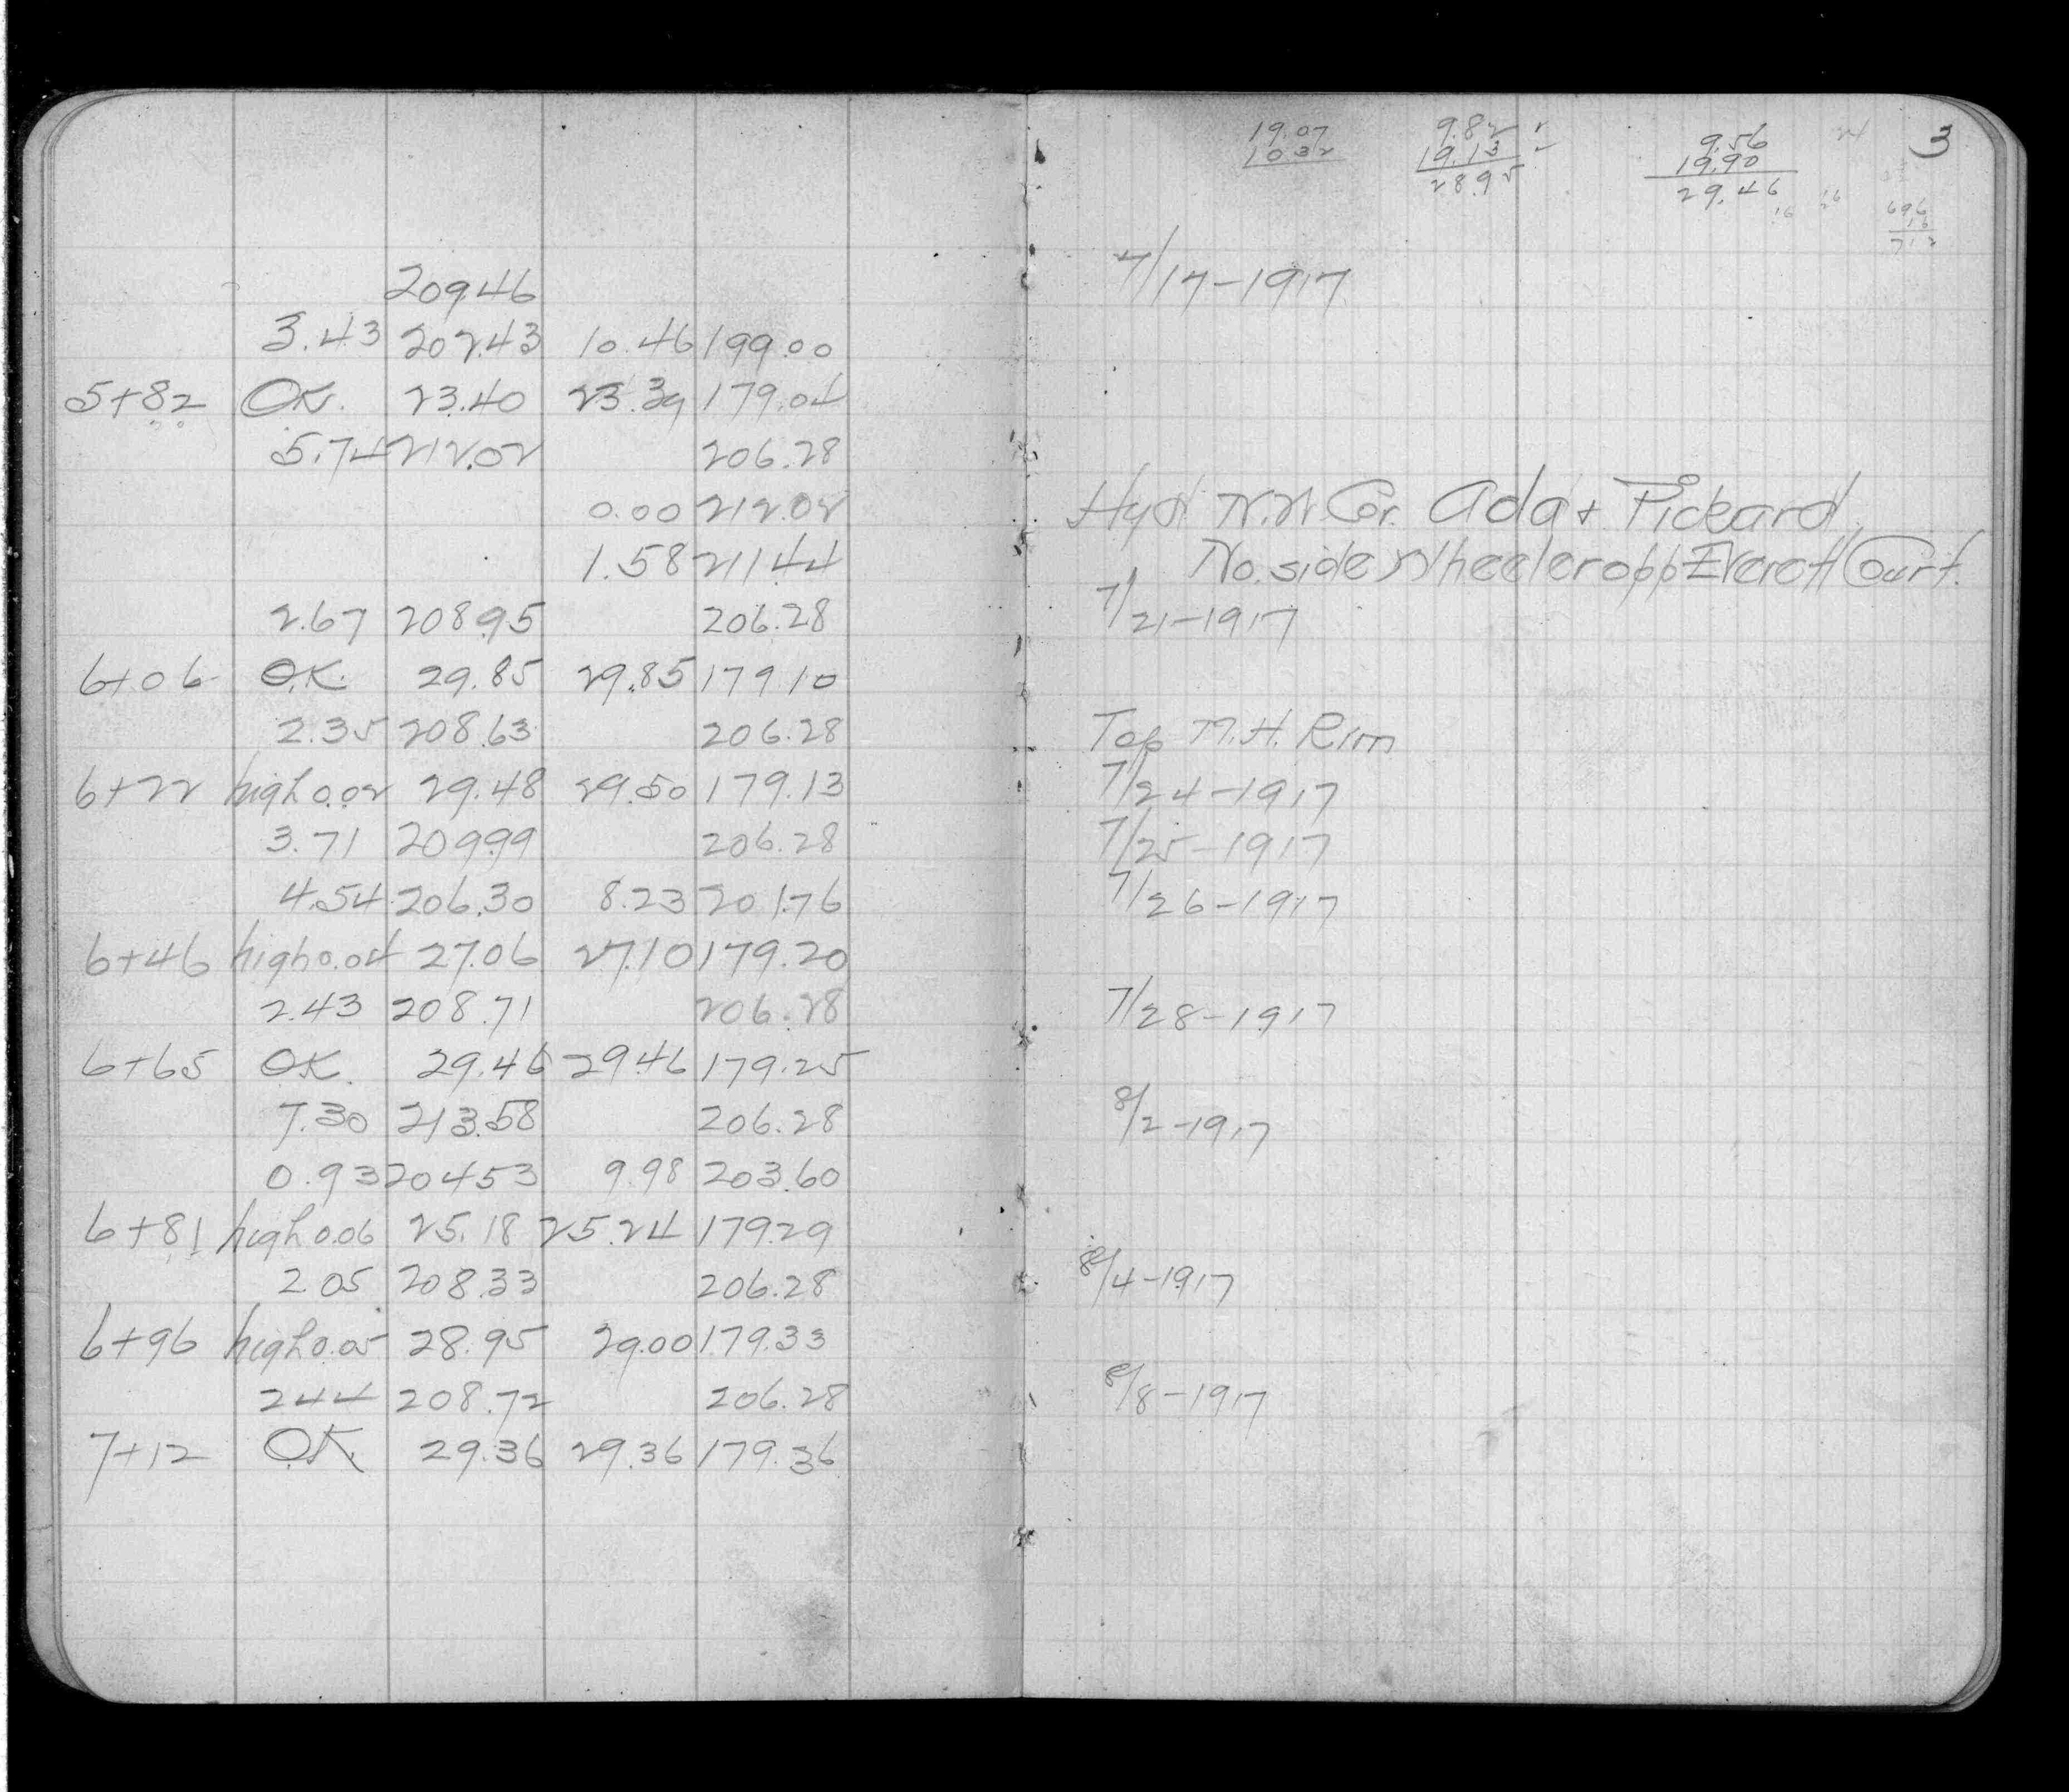 209.46
3.43 202.43 10.46 199.00
5+82 OK. 23.40 23.39 179.04
5.74 212.02 206.28
0.00 212.02
1.58 211.44
2.67 208.95 206.28
6+06 O.K. 29.85 29.85 179.10
2.35 208.63 206.28
6+22 high 0.02 29.48 29.50 179.13
3.71 209.99 206.28
4.54 206.30 8.23 201.76
6+46 high 0.04 27.06 27.10 179.20
2.43 208.71 206.28
6+65 OK. 29.46 29.46 179.25
7.30 213.58 206.28
0.93 204.53 9.98 203.60
6+81 high 0.06 25.18 25.24 179.29
2.05 208.33 206.28
6+96 high 0.05 28.95 29.00 179.33
2.44 208.72 206.28
7+12 O.K. 29.36 29.36 179.36
3
19.07
10 32
9.82
19.13
28.95
9.56
19.90
29.46
16
696
16
712
7/17-1917
Hyd N.W Cor. Ada + Pickard
No. side Wheeler opp Everett Court.
7/21-1917
Top M.H. Rim
7/24-1917
7/25-1917
7/26-1917
7/28-1917
8/2-1917
8/4-1917
8/8-1917